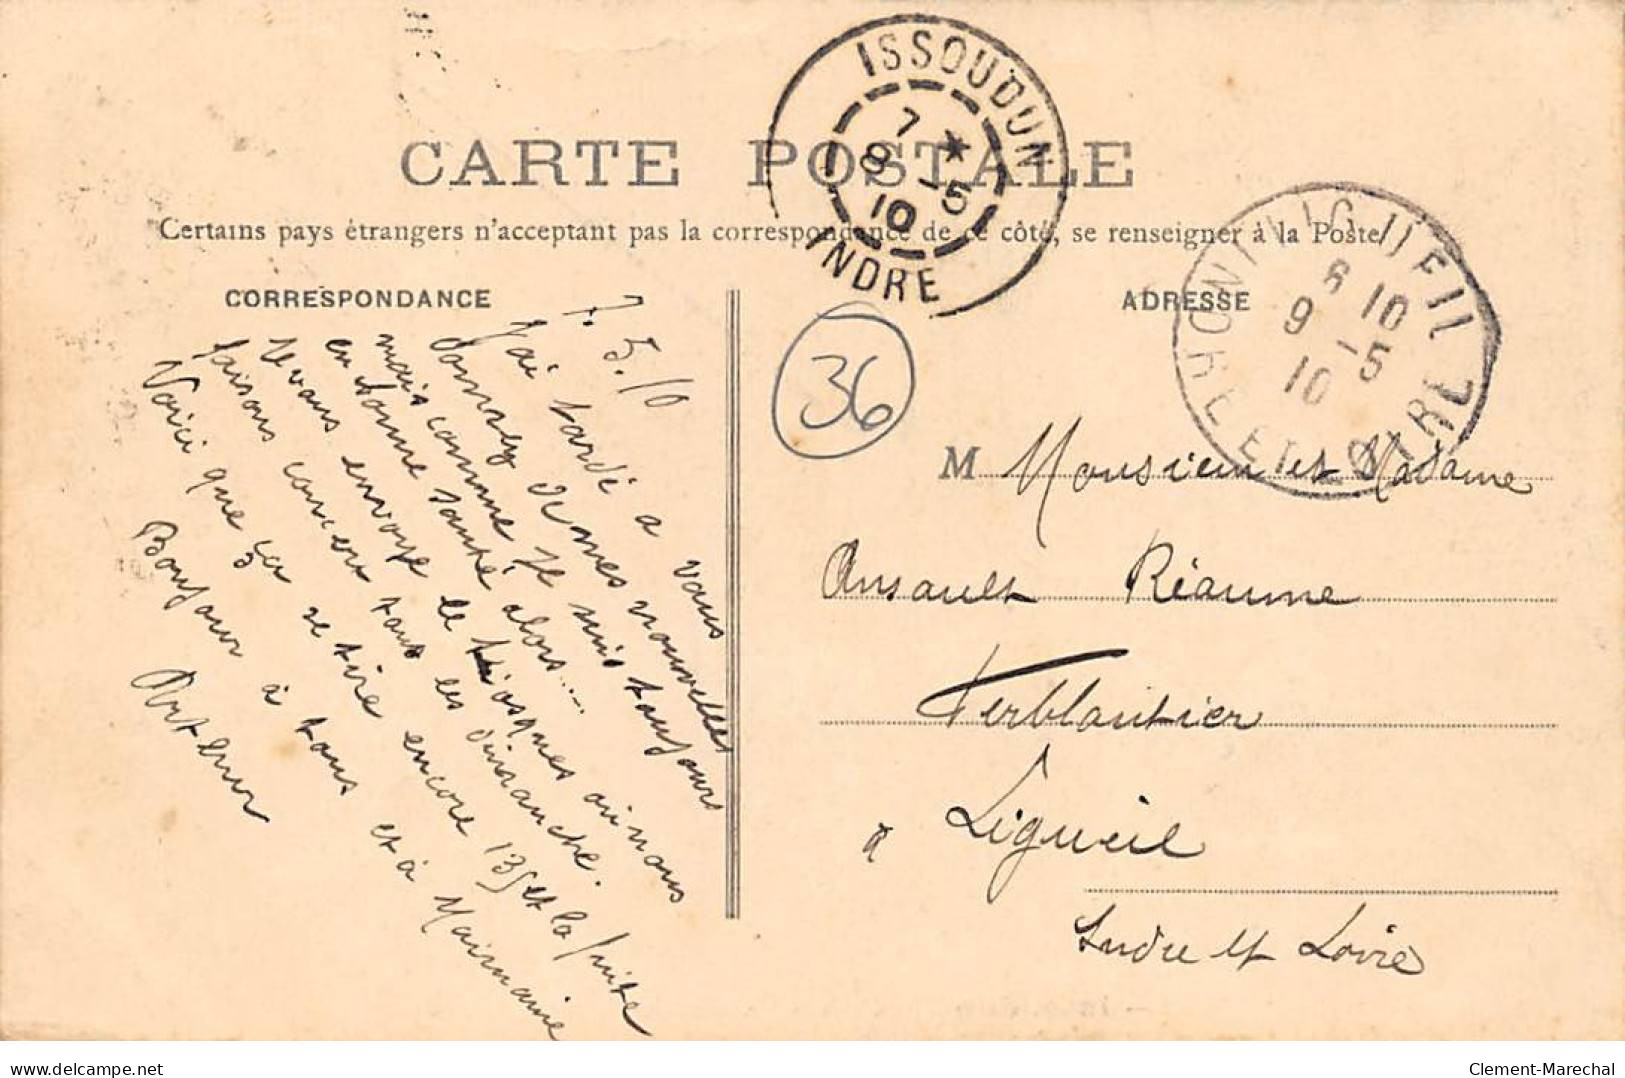 CARTE POSTALE
Certains pays étrangers n'acceptent pas la correspondance de ce côté, se renseigner à la Poste
CORRESPONDANCE
7.5.10
J'ai tardé a vous
donner de mes nouvelles
mais comme je suis toujours
en bonne santé alors....
Je vous envoye le kiosques ou nous
faisons concert tous les dimanche.
Voici que ça se tire encore 135 et la fuite
Bonjour à tous et à Mairmaine
Arthur
36
ISSOUDUN
7 *
8 -5
10
INDRE
ADRESSE
8 10
9 -5
10
ET LOIRE
M Monsieur et Madame
Ansault Réaume
Verblantier
a Ligueil
Indre et Loire
delcampe.net
Clement-Marechal